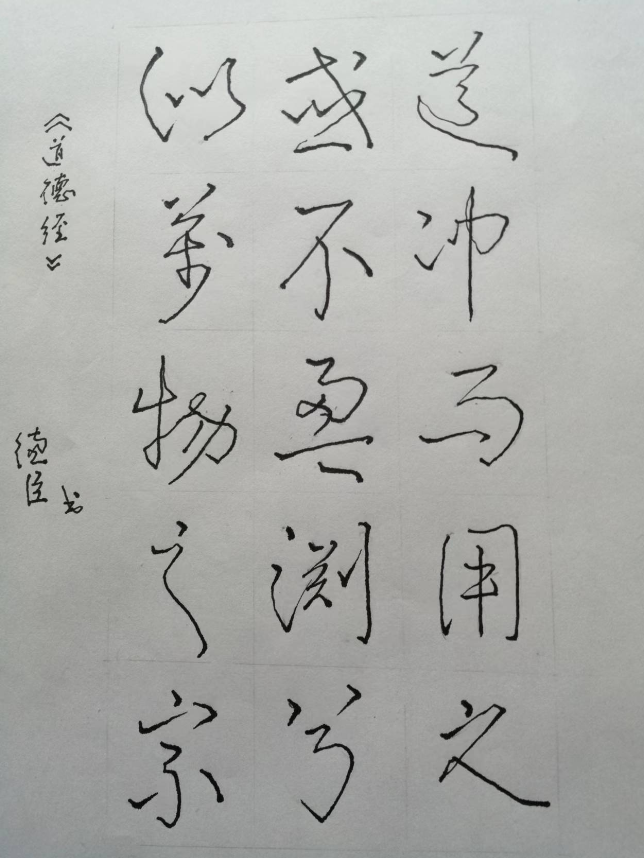 道冲而用之
或不盈渊兮
似万物之宗
《道德经》
德臣
书